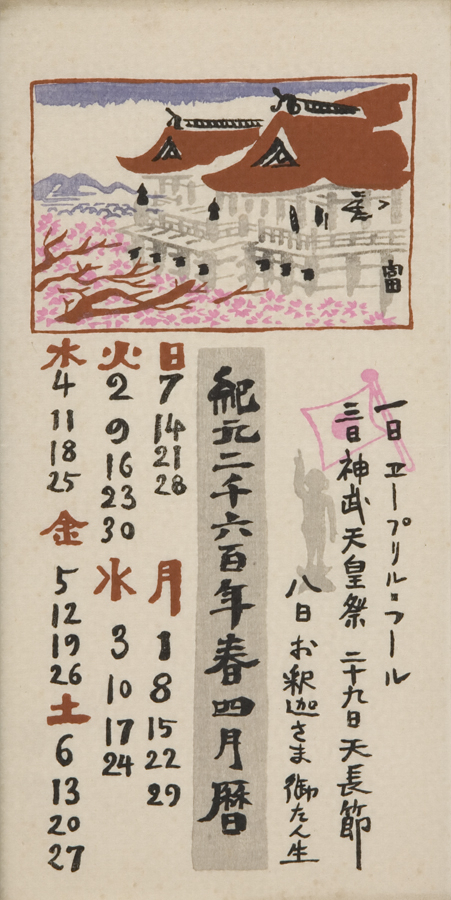 富
一日 エープリル・フール
三日 神武天皇祭 二十九日 天長節
八日 お釈迦さま御たん生
紀元二千六百年春四月暦
日 7 14 21 28
月 1 8 15 22 29
火 2 9 16 23 30
水 3 10 17 24
木 4 11 18 25
金 5 12 19 26
土 6 13 20 27